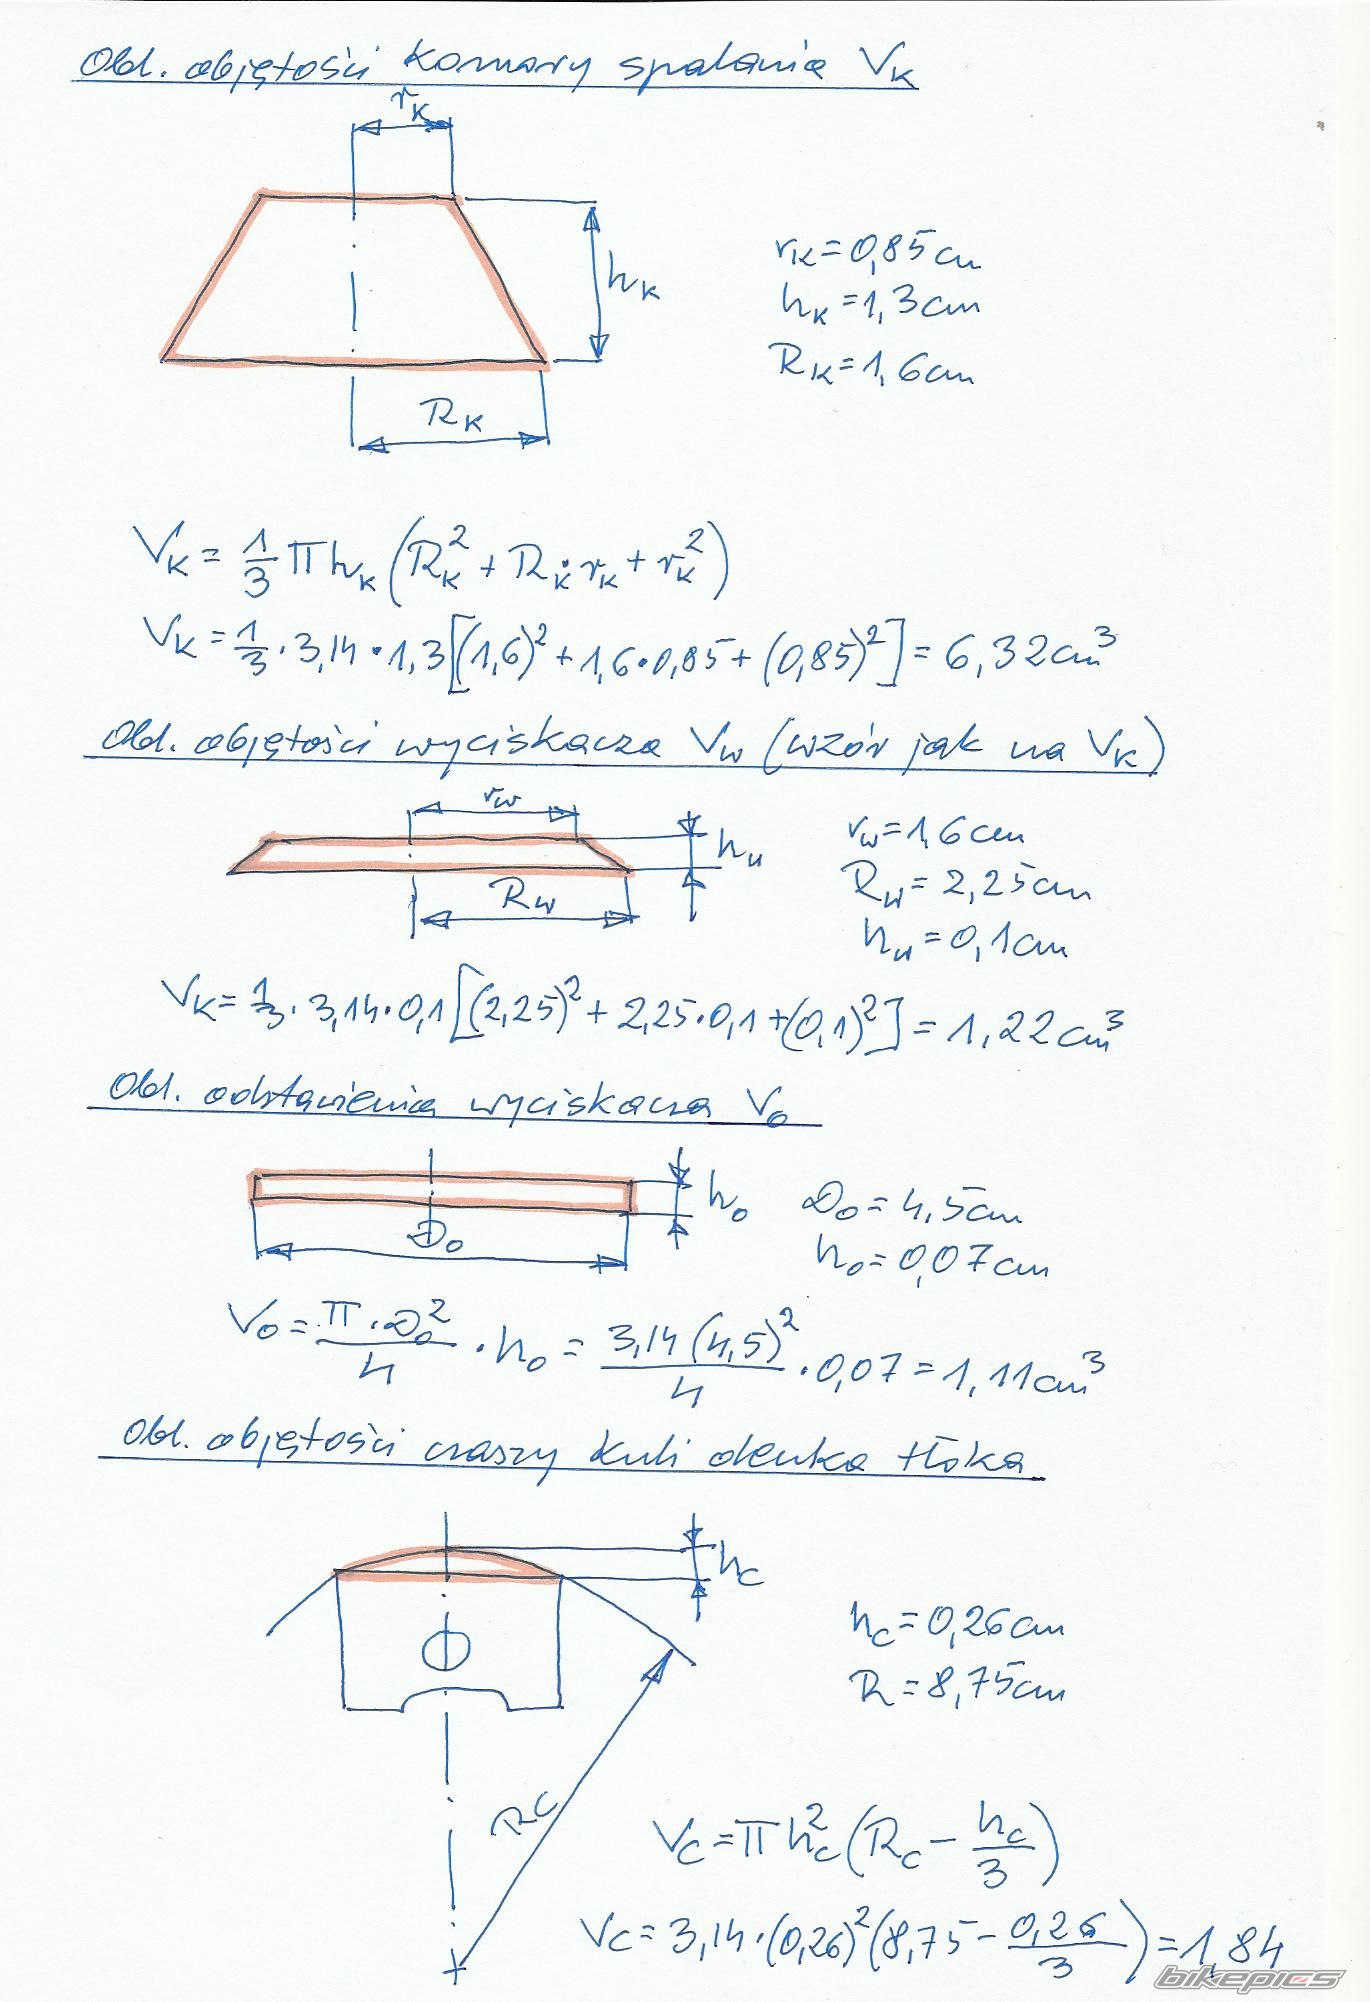 Obl. objętości komory spalania Vk
rk
rk=0,85cm
hk
hk=1,3cm
Rk=1,6cm
Rk
Vk = 1/3 π hk (Rk² + Rk·rk + rk²)
Vk = 1/3 · 3,14 · 1,3 [(1,6)² + 1,6·0,85 + (0,85)²] = 6,32cm³
Obl. objętości wyciskacza Vw (wzór jak na Vk)
rw
rw=1,6cm
hw
Rw
Rw=2,25cm
hw=0,1cm
Vk = 1/3 · 3,14 · 0,1 [(2,25)² + 2,25·0,1 + (0,1)²] = 1,22cm³
Obl. odstawienia wyciskacza Vo
ho
Do=4,5cm
Do
ho=0,07cm
Vo = π·Do²/4 · ho = 3,14(4,5)²/4 · 0,07 = 1,11cm³
Obl. objętości czaszy kuli denka tłoka
hc
hc=0,26cm
R=8,75cm
Rc
Vc = π hc² (Rc - hc/3)
Vc = 3,14 · (0,26)² (8,75 - 0,26/3) = 1,84
bikepics